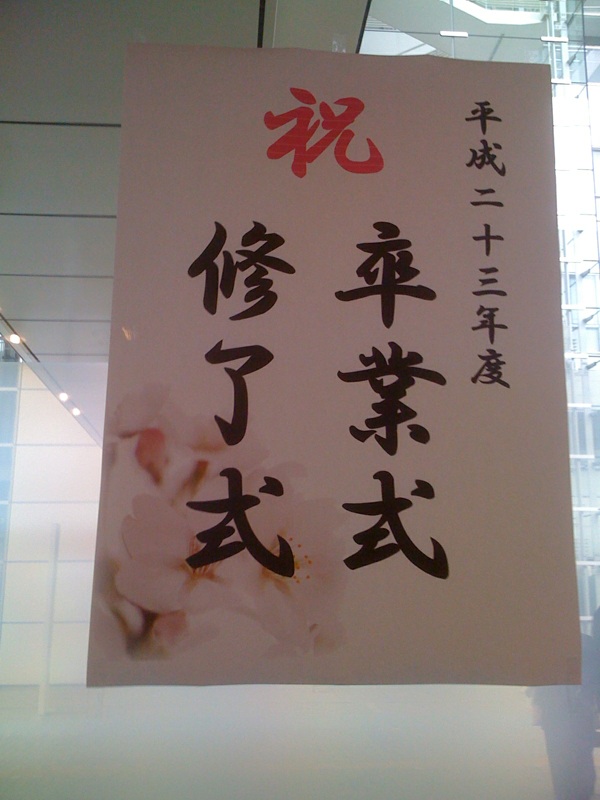 平成二十三年度
祝
卒業式
修了式